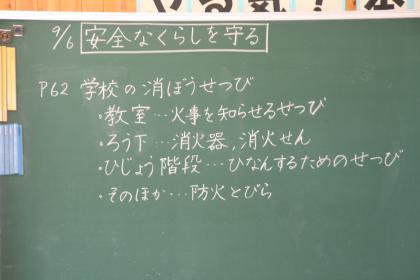 9/6 安全なくらしを守る
P62 学校の消ぼうせつび
・教室…火事を知らせるせつび
・ろう下…消火器,消火せん
・ひじょう階段…ひなんするためのせつび
・そのほか…防火とびら